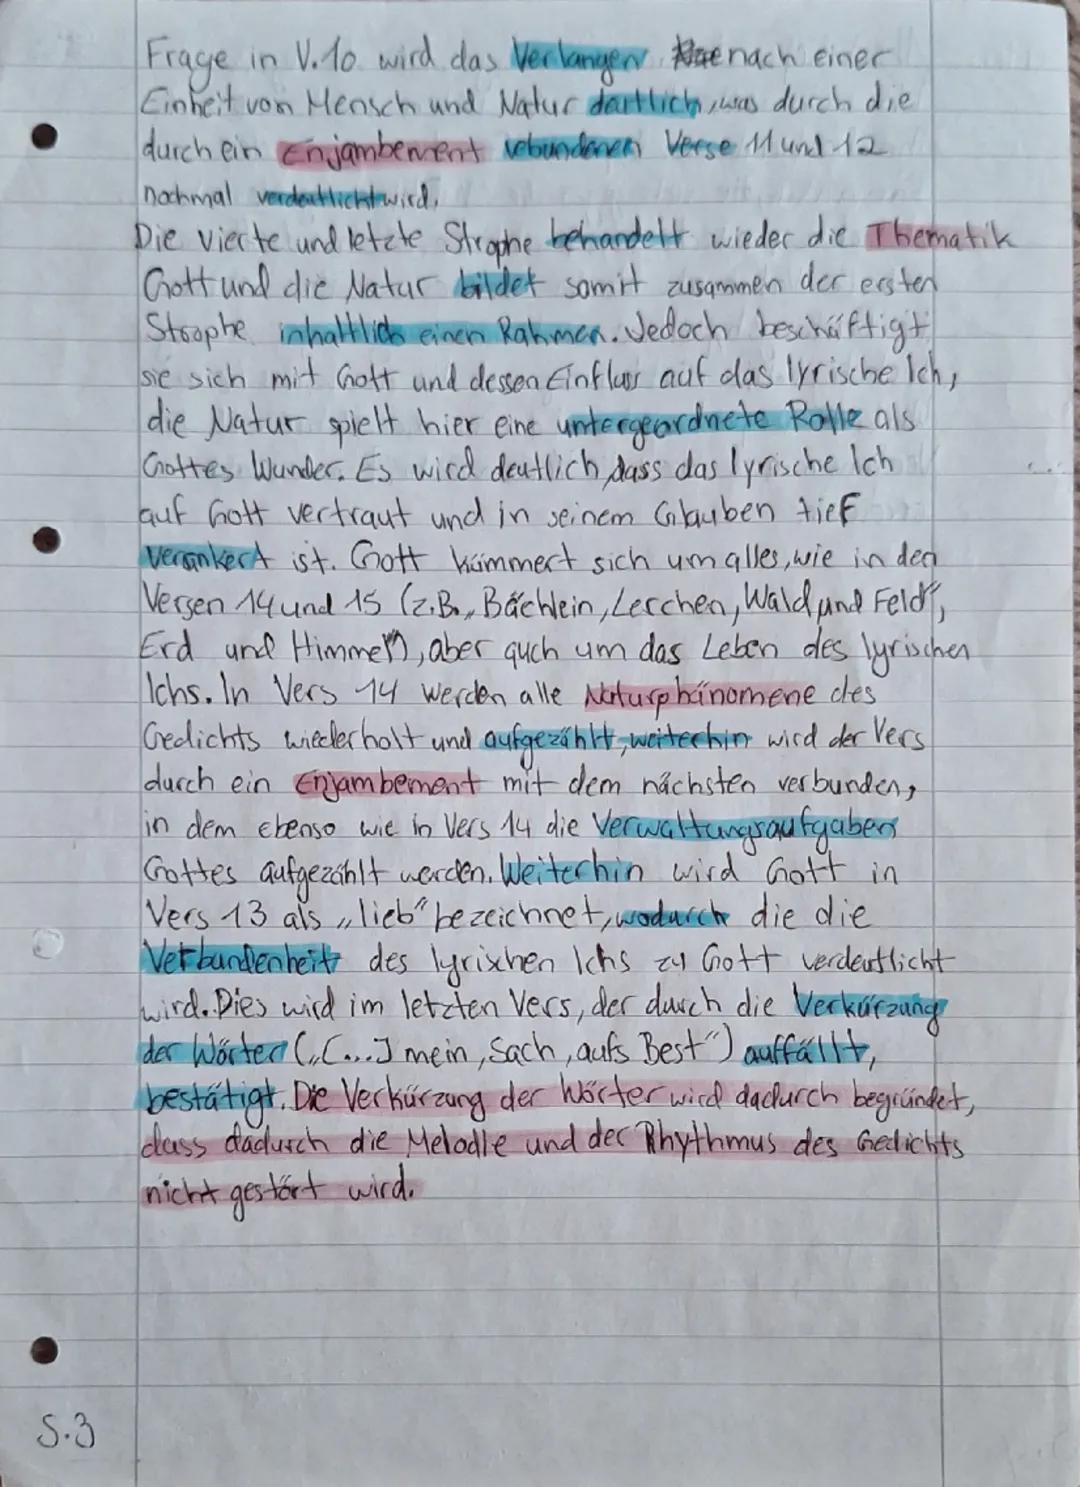 Frage in V.10 wird das Verlangen nach einer
Einheit von Mensch und Natur deutlich, was durch die
durch ein Enjambement vebundenen Verse 11 und 12
nochmal verdeutlicht wird.
Die vierte und letzte Strophe behandelt wieder die Thematik
Gott und die Natur bildet somit zusammen der ersten
Strophe inhaltlich einen Rahmen. Jedoch beschäftigt
sie sich mit Gott und dessen Einfluss auf das lyrische Ich,
die Natur spielt hier eine untergeordnete Rolle als
Gottes Wunder. Es wird deutlich, dass das lyrische Ich
auf Gott vertraut und in seinem Glauben tief
verankert ist. Gott kümmert sich um alles, wie in den
Versen 14 und 15 (z.B. „Bächlein, Lerchen, Wald und Feld“,
Erd und Himmel“), aber auch um das Leben des lyrischen
Ichs. In Vers 14 werden alle Naturphänomene des
Gedichts wiederholt und aufgezählt, weiterhin wird der Vers
durch ein Enjambement mit dem nächsten verbunden,
in dem ebenso wie in Vers 14 die Verwaltungsaufgaben
Gottes aufgezählt werden. Weiterhin wird Gott in
Vers 13 als „lieb“ bezeichnet, wodurch die die
Verbundenheit des lyrischen Ichs zu Gott verdeutlicht
wird. Dies wird im letzten Vers, der durch die Verkürzung
der Wörter („[...] mein, Sach, aufs Best“) auffällt,
bestätigt. Die Verkürzung der Wörter wird dadurch begründet,
dass dadurch die Melodie und der Rhythmus des Gedichts
nicht gestört wird.
S.3